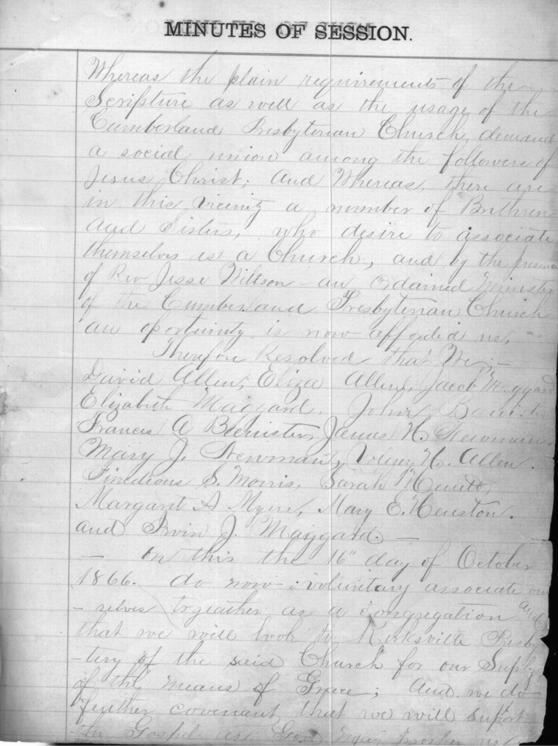 MINUTES OF SESSION.
Whereas the plain requirements of the
Scripture as well as the usage of the
Cumberland Presbyterian Church, demand
a social union among the followers of
Jesus Christ; And Whereas, there are
in this vicinity a number of Brethren
and Sisters, who desire to associate
themselves as a Church, and by the
of Rev Jesse Wilson - an Ordained
of the Cumberland Presbyterian Church
an oportunity is now afforded us,
Therefore Resolved that We,
David Allen, Eliza Allen, Jacob Maggard
Elizabeth Maggard, John
Francis A James H. Newman
Mary J. Newman, H. Allen.
S. Morris, Sarah
Margaret A Myers, Mary E. Heuston.
and Irvin J. Maggard. —
— on this the 16" day of October
1866. do now voluntary associate our
- selves together as a Congregation and
that we will look to Kirksville Presby
- tery of the said Church for our
of the means of Grace; And we do
further covenant that we will suport
the Gospel